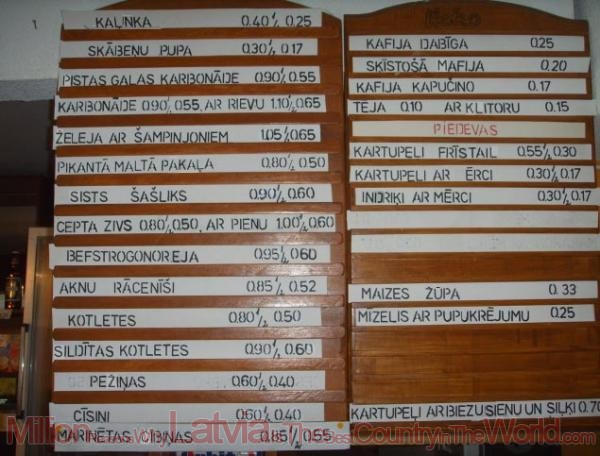 KAĻINKA 0.40 1/2 0.25
SKĀBEŅU PUPA 0.30 1/2 0.17
PISTAS GALAS KARBONĀDE 0.90 1/2 0.55
KARBONĀDE 0.90 1/2 0.55, AR RIEVU 1.10 1/2 0.65
ŽELEJA AR ŠAMPINJONIEM 1.05 1/2 0.65
PIKANTĀ MALTĀ PAKAĻA 0.80 1/2 0.50
SISTS ŠAŠLIKS 0.90 1/2 0.60
CEPTA ZIVS 0.80 1/2 0.50, AR PIENU 1.00 1/2 0.60
BEFSTROGONOREJA 0.95 1/2 0.60
AKNU RĀCENĪŠI 0.85 1/2 0.52
KOTLETES 0.80 1/2 0.50
SILDĪTAS KOTLETES 0.90 1/2 0.60
PEŽIŅAS 0.60 1/2 0.40
CĪSIŅI 0.60 1/2 0.40
MARINĒTAS CĪBIŅAS 0.85 1/2 0.55
KAFIJA DABĪGA 0.25
ŠĶĪSTOŠĀ MAFIJA 0.20
KAFIJA KAPUČINO 0.17
TĒJA 0.10 AR KLITORU 0.15
PIEDEVAS
KARTUPEĻI FRĪSTAIL 0.55 1/2 0.30
KARTUPEĻI AR ĒRCI 0.30 1/2 0.17
INDRIĶI AR MĒRCI 0.30 1/2 0.17
MAIZES ŽŪPA 0.33
MĪZELIS AR PUPUKRĒJUMU 0.25
KARTUPEĻI AR BIEZU SIENU UN SIĻĶI 0.70
MillionReasonsWhyLatviaIsTheBestCountryInTheWorld.com